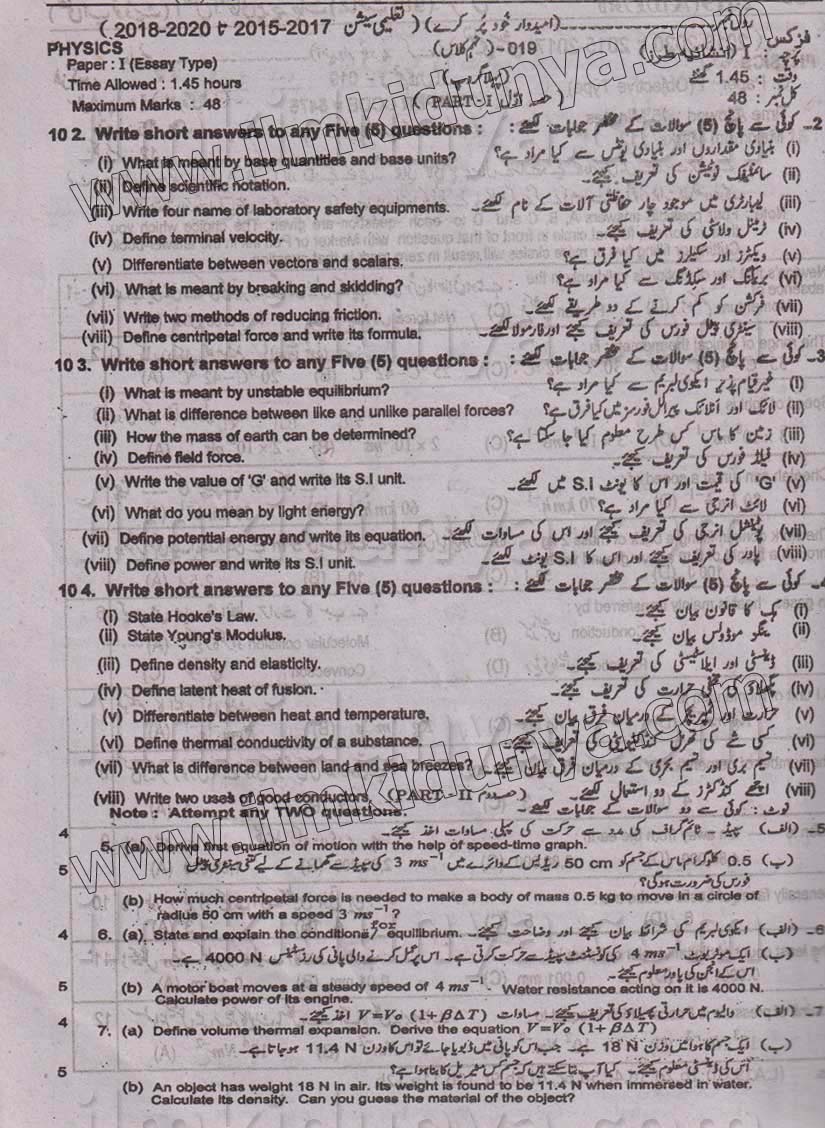 رول نمبر ـــــــــ (امیدوار خود پُر کرے) ( تعلیمی سیشن 2017-2015 تا 2020-2018 )
PHYSICS 019-(نہم کلاس) فزکس
Paper : I (Essay Type) پرچہ : I (انشائیہ طرز)
Time Allowed : 1.45 hours (پہلا گروپ) وقت : 1.45 گھنٹے
Maximum Marks : 48 (PART - I حصہ اوّل) کل نمبر : 48
10 2. Write short answers to any Five (5) questions : 2- کوئی سے پانچ (5) سوالات کے مختصر جوابات لکھئے :
(i) What is meant by base quantities and base units? (i) بنیادی مقداروں اور بنیادی یونٹس سے کیا مراد ہے؟
(ii) Define scientific notation. (ii) سائنٹیفک نوٹیشن کی تعریف کیجئے۔
(iii) Write four name of laboratory safety equipments. (iii) لیبارٹری میں موجود چار حفاظتی آلات کے نام لکھئے۔
(iv) Define terminal velocity. (iv) ٹرمینل ولاسٹی کی تعریف کیجئے۔
(v) Differentiate between vectors and scalars. (v) ویکٹرز اور سکیلرز میں کیا فرق ہے؟
(vi) What is meant by breaking and skidding? (vi) بریکنگ اور سکڈنگ سے کیا مراد ہے؟
(vii) Write two methods of reducing friction. (vii) فرکشن کو کم کرنے کے دو طریقے لکھئے۔
(viii) Define centripetal force and write its formula. (viii) سینٹری پیٹل فورس کی تعریف کیجئے اور فارمولا لکھئے۔
10 3. Write short answers to any Five (5) questions : 3- کوئی سے پانچ (5) سوالات کے مختصر جوابات لکھئے :
(i) What is meant by unstable equilibrium? (i) غیر قیام پذیر ایکوی لبریم سے کیا مراد ہے؟
(ii) What is difference between like and unlike parallel forces? (ii) لائک اور اَن لائک پیرالل فورسز میں کیا فرق ہے؟
(iii) How the mass of earth can be determined? (iii) زمین کا ماس کس طرح معلوم کیا جا سکتا ہے؟
(iv) Define field force. (iv) فیلڈ فورس کی تعریف کیجئے۔
(v) Write the value of 'G' and write its S.I unit. (v) 'G' کی قیمت اور اس کا یونٹ S.I میں لکھئے۔
(vi) What do you mean by light energy? (vi) لائٹ انرجی سے کیا مراد ہے؟
(vii) Define potential energy and write its equation. (vii) پوٹینشل انرجی کی تعریف کیجئے اور اس کی مساوات لکھئے۔
(viii) Define power and write its S.I unit. (viii) پاور کی تعریف کیجئے اور اس کا S.I یونٹ لکھئے۔
10 4. Write short answers to any Five (5) questions : 4- کوئی سے پانچ (5) سوالات کے مختصر جوابات لکھئے :
(i) State Hooke's Law. (i) ہک کا قانون بیان کیجئے۔
(ii) State Young's Modulus. (ii) ینگز موڈولس بیان کیجئے۔
(iii) Define density and elasticity. (iii) ڈینسٹی اور ایلاسٹیسٹی کی تعریف کیجئے۔
(iv) Define latent heat of fusion. (iv) پگھلاؤ کی مخفی حرارت کی تعریف کیجئے۔
(v) Differentiate between heat and temperature. (v) حرارت اور ٹمپریچر کے درمیان فرق بیان کیجئے۔
(vi) Define thermal conductivity of a substance. (vi) کسی شے کی تھرمل کنڈکٹیویٹی کی تعریف کیجئے۔
(vii) What is difference between land and sea breezes? (vii) نسیم بری اور نسیم بحری کے درمیان فرق بیان کیجئے۔
(viii) Write two uses of good conductors. (PART - II حصہ دوم) (viii) اچھے کنڈکٹرز کے دو استعمال لکھئے۔
Note : Attempt any TWO questions. نوٹ : کوئی سے دو سوالات کے جوابات لکھئے۔
4 5- (الف) سپیڈ - ٹائم گراف کی مدد سے حرکت کی پہلی مساوات اخذ کیجئے۔
5. (a) Derive first equation of motion with the help of speed-time graph.
5 (ب) 0.5 کلوگرام ماس کے جسم کو 50 cm ریڈیس کے دائرے میں 3 ms⁻¹ کی سپیڈ سے گھمانے کے لیے کتنی سینٹری پیٹل
فورس کی ضرورت ہوگی؟
(b) How much centripetal force is needed to make a body of mass 0.5 kg to move in a circle of
radius 50 cm with a speed 3 ms⁻¹?
4 6. (a) State and explain the conditions for equilibrium. 6- (الف) ایکوی لبریم کی شرائط بیان کیجئے اور وضاحت کیجئے۔
(ب) ایک موٹر بوٹ 4 ms⁻¹ کی کونسٹنٹ سپیڈ سے حرکت کرتی ہے۔ اس پر عمل کرنے والی پانی کی رزسٹنس 4000 N ہے۔
اس کے انجن کی پاور معلوم کیجئے۔
5 (b) A motor boat moves at a steady speed of 4 ms⁻¹. Water resistance acting on it is 4000 N.
Calculate power of its engine.
4 7- (الف) والیوم میں حرارتی پھیلاؤ کی تعریف کیجئے۔ مساوات V=V₀ (1+βΔT) اخذ کیجئے۔
7. (a) Define volume thermal expansion. Derive the equation V=V₀ (1+βΔT)
(ب) ایک جسم کا ہوا میں وزن 18 N ہے۔ جب اس کو پانی میں ڈبویا جائے تو اس کا وزن 11.4 N ہو جاتا ہے۔
5 اُس کی ڈینسٹی معلوم کیجئے۔ کیا آپ بتا سکتے ہیں کہ جسم کس میٹیریل کا بنا ہوا ہے؟
(b) An object has weight 18 N in air. Its weight is found to be 11.4 N when immersed in water.
Calculate its density. Can you guess the material of the object?
www.ilmkidunya.com
www.ilmkidunya.com